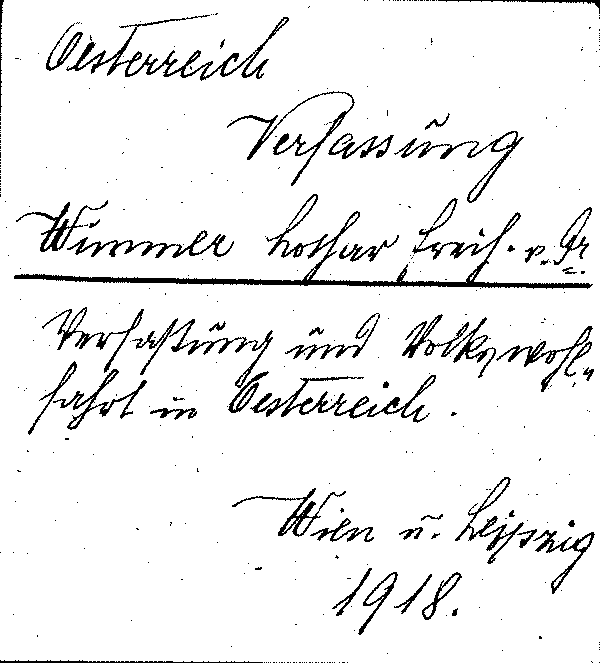 Oesterreich
Verfassung
Wimmer Lothar Freih. v. Dr.
Verfassung und Volkswohl-
fahrt in Oesterreich.
Wien u. Leipzig
1918.